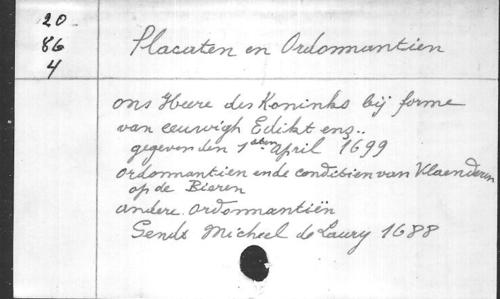 20
86
4
Placaten en Ordonnantien
ons Heere des Koninks bij forme
van eeuwigh Edikt enz..
gegeven den 1sten April 1699
ordonnantien ende conditien van Vlaenderen
op de Bieren
andere ordonnantiën
Gendt Micheel de Laury 1688